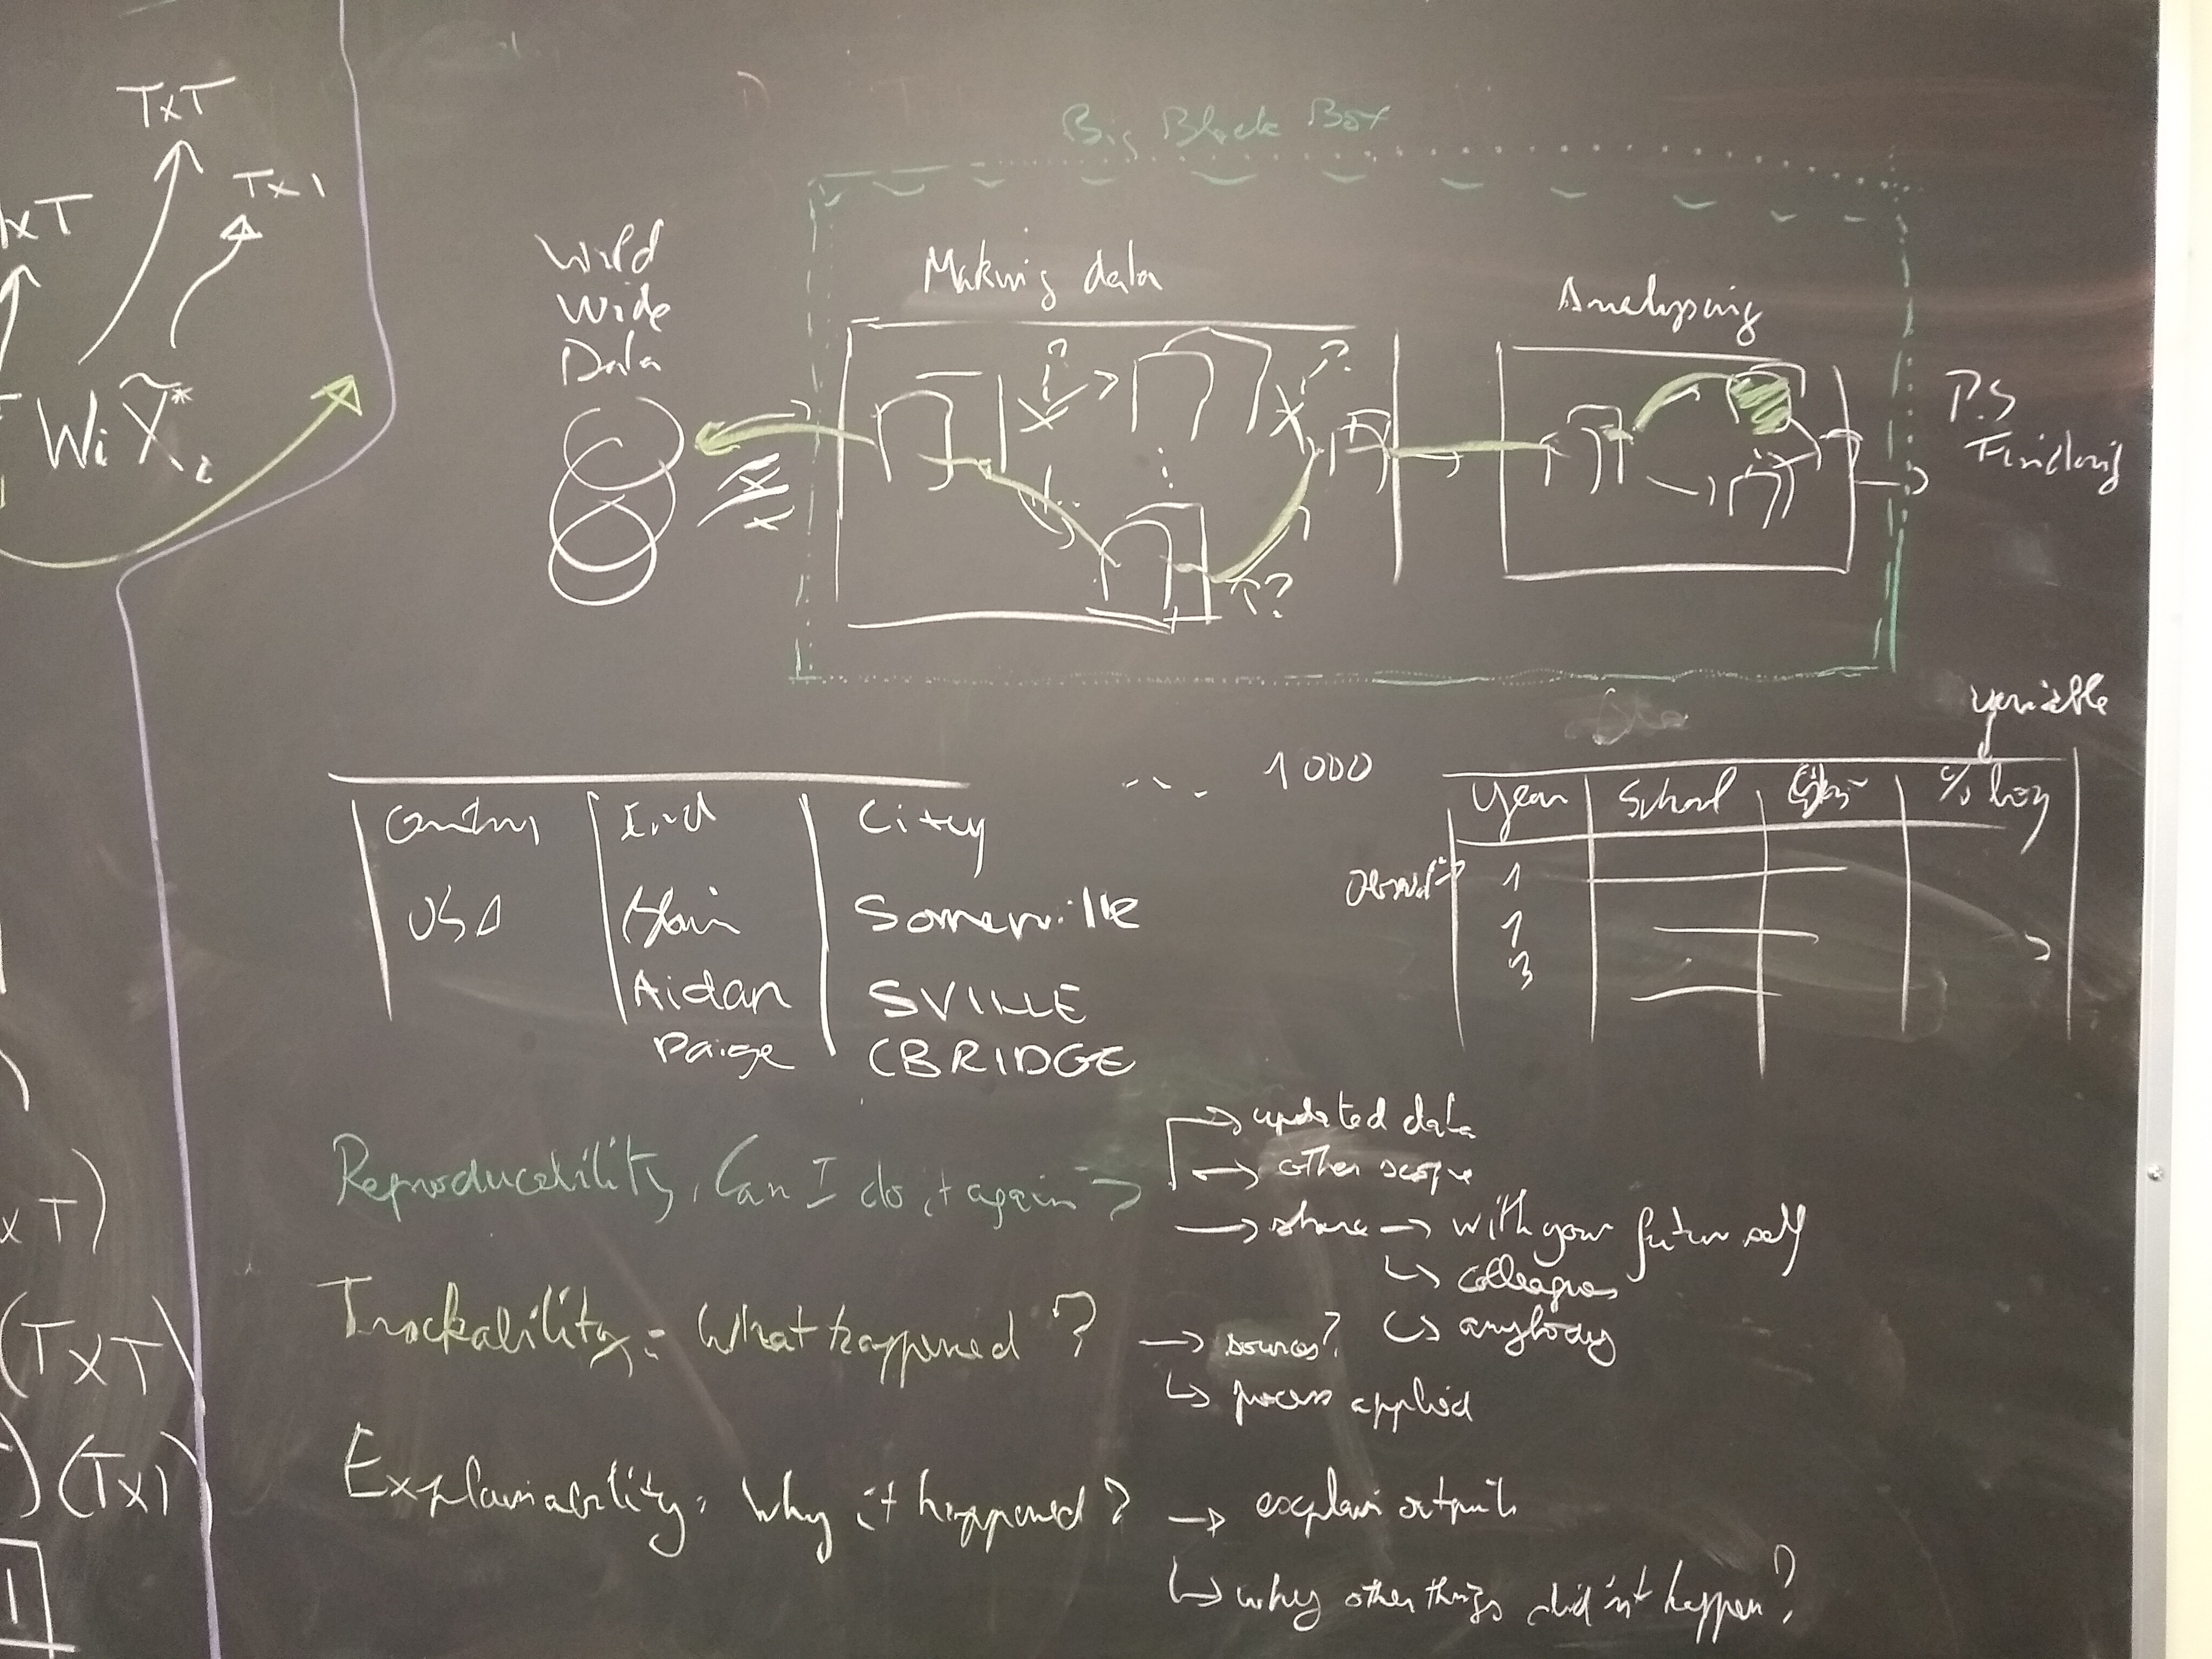 TxT
Tx1
xT
Wi X̃*
Big Black Box
Wild
Wide
Data
Making data
Analysing
?
?
T?
P.S
Finding
variable
1000
Country | Ind | City
USA | | Somerville
Aidan | SVILLE
Paige | CBRIDGE
Year | School | | % boy
1
1
3
Reproducability, Can I do it again
→ updated data
→ other scope
→ share → with your futur self
↳ colleagues
↳ anybody
Trackability: What happened?
→ sources?
↳ process applied
Explainability: Why it happened?
→ explain outputs
↳ why other things did n't happen?
xT)
(TxT)
)(Tx1)
1